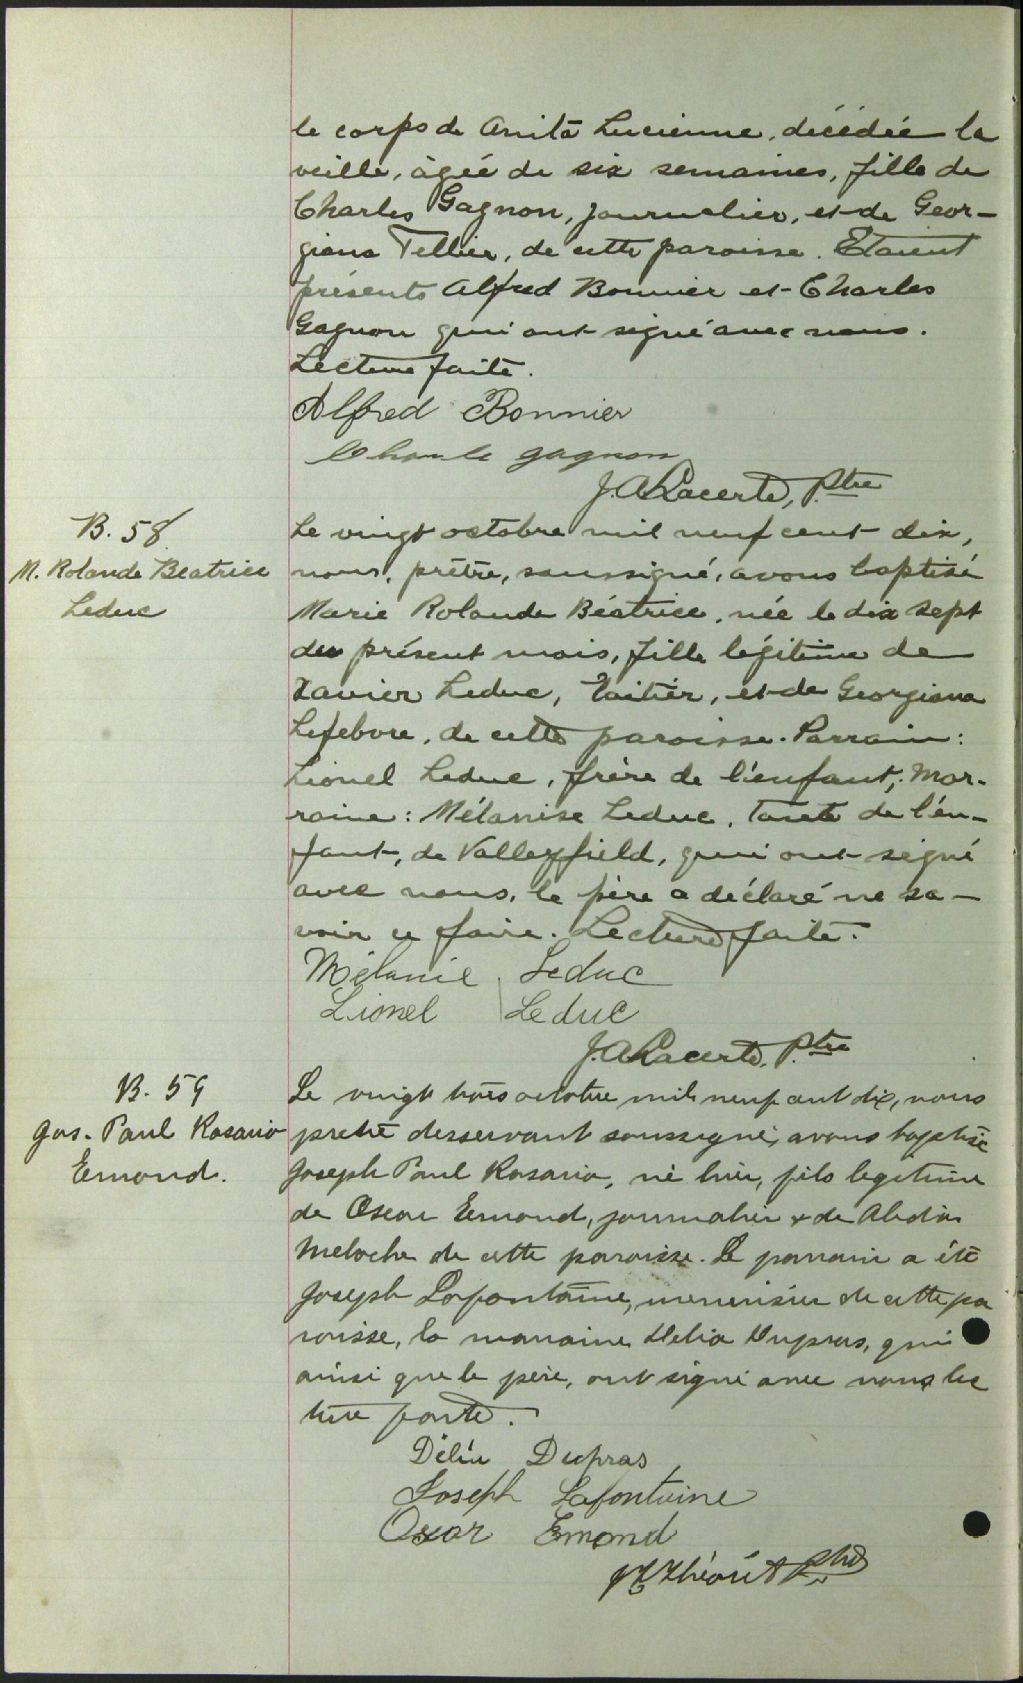 le corps de Anita Lucienne, décédée la
veille, âgée de six semaines, fille de
Charles Gagnon, journalier, et de Geor-
giana Tellier, de cette paroisse. Etaient
présents Alfred Bonnier et Charles
Gagnon qui ont signé avec nous.
Lecture faite.
Alfred Bonnier
Charle gagnon
J.A. Lacerte, Ptre
B. 58
M. Rolande Béatrice
Leduc
Le vingt octobre mil neuf cent dix,
nous, prêtre, soussigné, avons baptisé
Marie Rolande Béatrice, née le dix sept
du présent mois, fille légitime de
Xavier Leduc, laitier, et de Georgiana
Lefebvre, de cette paroisse. Parrain:
Lionel Leduc, frère de l'enfant; Mar-
raine: Mélanise Leduc, tante de l'en-
fant, de Valleyfield, qui ont signé
avec nous, le père a déclaré ne sa-
voir le faire. Lecture faite.
Mélanie Leduc
Lionel Leduc
J.A. Lacerte, Ptre
B. 59
Jos. Paul Rosario
Emond.
Le vingt trois octobre mil neuf cent dix, nous
pretre desservant soussigné, avons baptisé
Joseph Paul Rosario, né hier, fils legitime
de Oscar Emond, journalier & de
Meloche de cette paroisse. Le parrain a été
Joseph Lafontaine, menuisier de cette pa
roisse, la marraine Delia Dupras, qui
ainsi que le père, ont signé avec nous lec
ture faite.
Délia Dupras
Joseph Lafontaine
Oscar Emond
Ptre